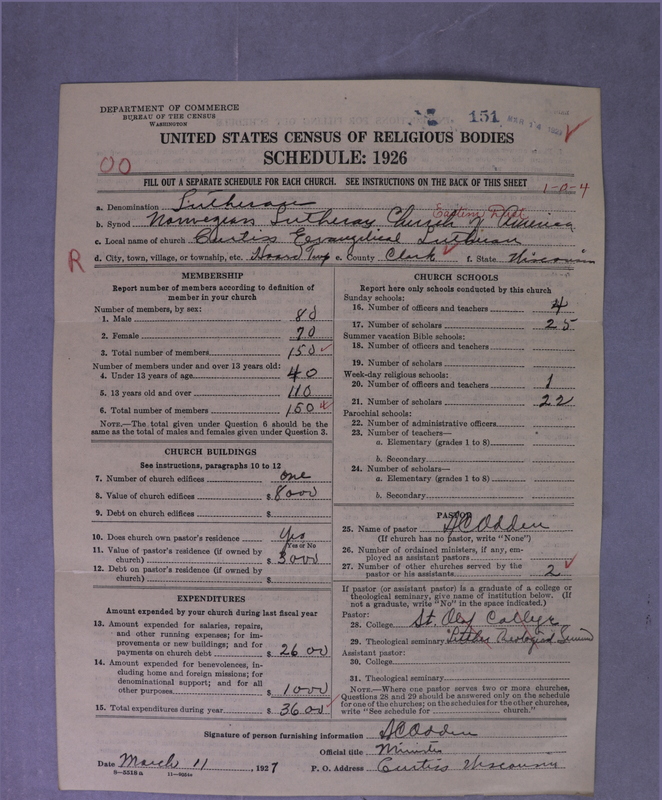 DEPARTMENT OF COMMERCE
BUREAU OF THE CENSUS
WASHINGTON
151
UNITED STATES CENSUS OF RELIGIOUS BODIES
SCHEDULE: 1926
OO
FILL OUT A SEPARATE SCHEDULE FOR EACH CHURCH. SEE INSTRUCTIONS ON THE BACK OF THIS SHEET
1-0-4
a. Denomination Lutheran
Eastern Dist
b. Synod Norwegian Lutheran Church of America
c. Local name of church Curtiss Evangelical Lutheran
R
d. City, town, village, or township, etc. Hoard Twp e. County Clark f. State Wisconsin
MEMBERSHIP
Report number of members according to definition of
member in your church
Number of members, by sex:
1. Male 80
2. Female 70
3. Total number of members 150
Number of members under and over 13 years old:
4. Under 13 years of age 40
5. 13 years old and over 110
6. Total number of members 150
NOTE.—The total given under Question 6 should be the
same as the total of males and females given under Question 3.
CHURCH BUILDINGS
See instructions, paragraphs 10 to 12
7. Number of church edifices one
8. Value of church edifices $ 8000
9. Debt on church edifices $
10. Does church own pastor's residence Yes
Yes or No
11. Value of pastor's residence (if owned by
church) $ 3000
12. Debt on pastor's residence (if owned by
church) $
EXPENDITURES
Amount expended by your church during last fiscal year
13. Amount expended for salaries, repairs,
and other running expenses; for im-
provements or new buildings; and for
payments on church debt $ 2600
14. Amount expended for benevolences, in-
cluding home and foreign missions; for
denominational support; and for all
other purposes $ 1000
15. Total expenditures during year $ 3600
CHURCH SCHOOLS
Report here only schools conducted by this church
Sunday schools:
16. Number of officers and teachers 4
17. Number of scholars 25
Summer vacation Bible schools:
18. Number of officers and teachers
19. Number of scholars
Week-day religious schools:
20. Number of officers and teachers 1
21. Number of scholars 22
Parochial schools:
22. Number of administrative officers
23. Number of teachers—
a. Elementary (grades 1 to 8)
b. Secondary
24. Number of scholars—
a. Elementary (grades 1 to 8)
b. Secondary
PASTOR
25. Name of pastor A C Odden
(If church has no pastor, write "None")
26. Number of ordained ministers, if any, em-
ployed as assistant pastors
27. Number of other churches served by the
pastor or his assistants 2
If pastor (or assistant pastor) is a graduate of a college or
theological seminary, give name of institution below. (If
not a graduate, write "No" in the space indicated.)
Pastor:
28. College St. Olaf College
29. Theological seminary Luther Theological
Assistant pastor:
30. College
31. Theological seminary
NOTE.—Where one pastor serves two or more churches,
Questions 28 and 29 should be answered only on the schedule
for one of the churches; on the schedules for the other churches,
write "See schedule for church."
Signature of person furnishing information A C Odden
Official title Minister
Date March 11, 1927 P. O. Address Curtiss Wisconsin